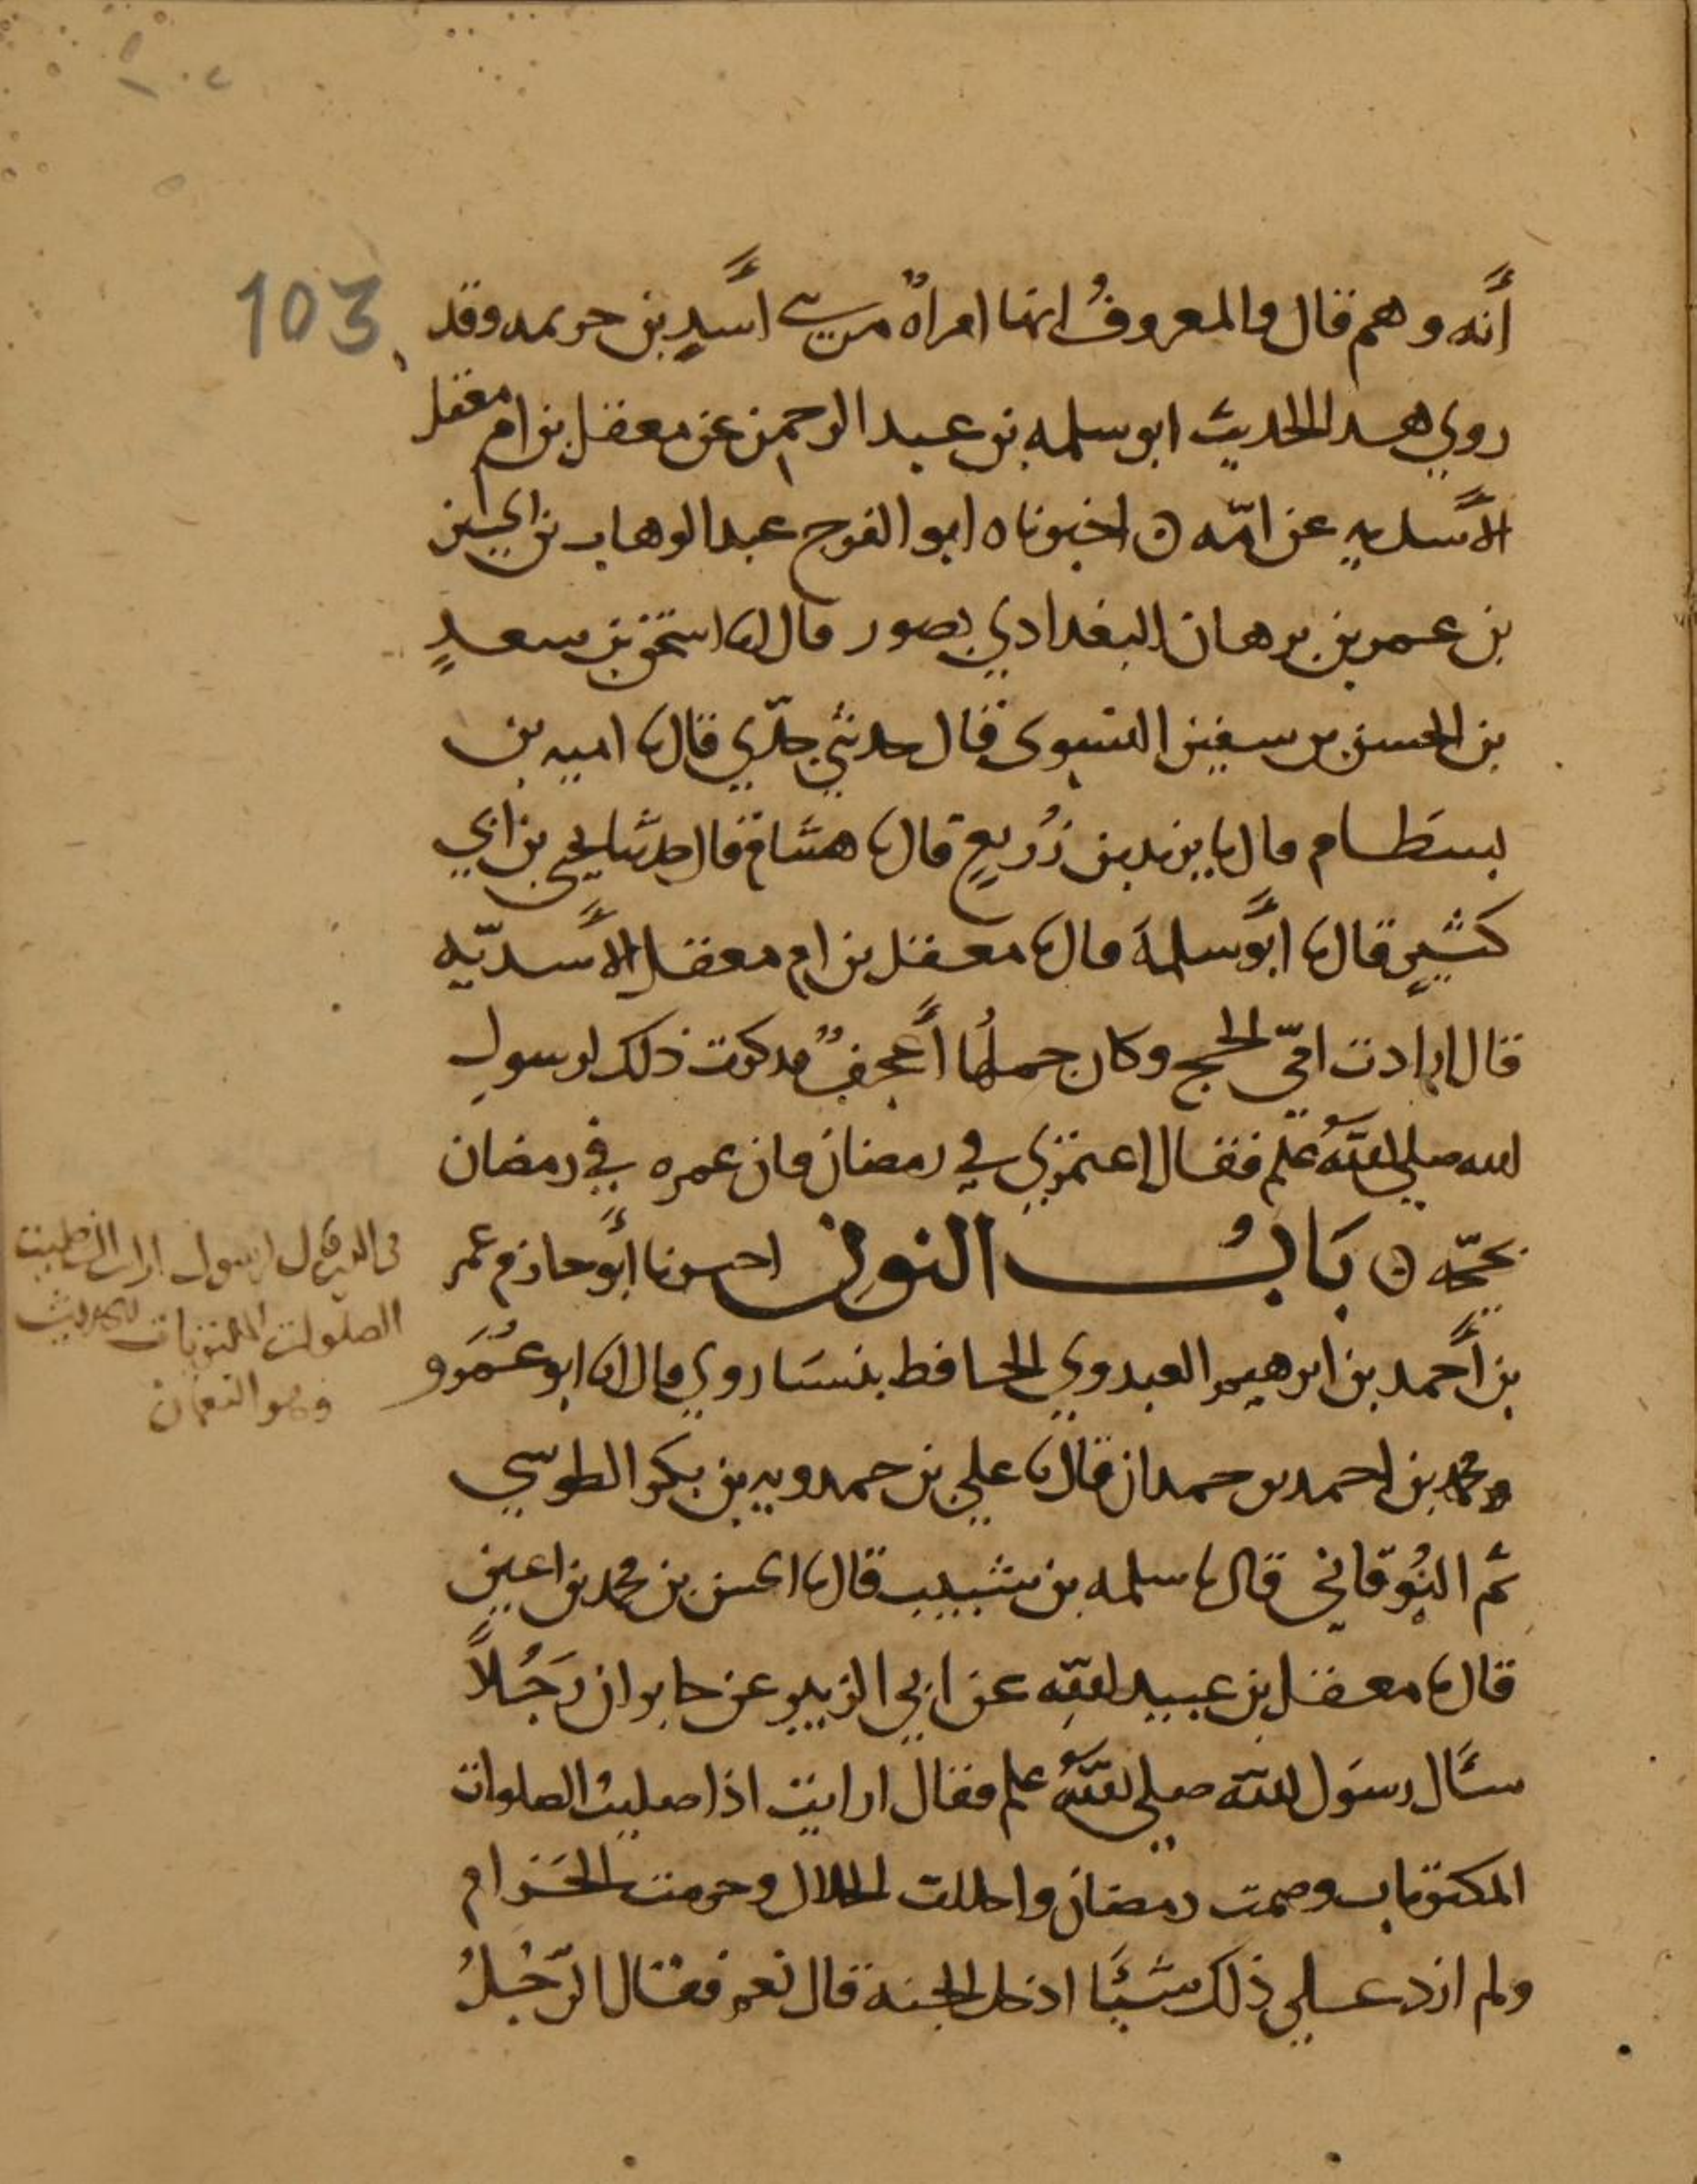 103
أنه وهم قال والمعروف انها امراة من بني أسد بن خزيمه وقد
روي هذا الحديث ابو سلمه بن عبد الرحمن عن معقل بن ام معقل
الأسديه عن امّه ه اخبرناه ابو الفرج عبد الوهاب بن الحسين
بن عمر بن برهان البغدادي بصور قال انا اسحق بن سعدٍ
بن الحسن بن سفين النسوي قال حدثني جدّي قال نا اميه بن
بسطام قال نا يزيد بن زُريعٍ قال نا هشام قال حدثنا يحيى بن ابي
كثيرٍ قال نا أبو سلمة قال نا معقل بن ام معقل الأسديّه
قال ارادت امّي الحج وكان جملُها أعجفُ فذكرت ذلك لرسول
الله صلى الله عليه وسلم فقال اعتمري في رمضان فان عمره في رمضان
بحجّه ه بَابُ النون اخبرنا أبو حازم عمر
بن أحمد بن ابرهيم العبدوي الحافظ بنيسابور قال انا ابو عَمرو
محمد بن احمد بن حمدان قال نا علي بن حمدويه بن بكر الطوسي
ثم النُوقاني قال نا سلمه بن شبيب قال نا الحسن بن محمد بن اعين
قال نا معقل بن عبيد الله عن ابي الزبير عن جابر ان رَجُلاً
سأل رسول الله صلى الله عليه وسلم فقال ارايت اذا صليت الصلوات
المكتوبات وصمت رمضان واحللت الحلال وحرمت الحرام
ولم ازد على ذلك شيئًا ادخل الجنة قال نعم فقال الرّجُلُ
الصلوات المكتوبات الحديث
وهو النعمان